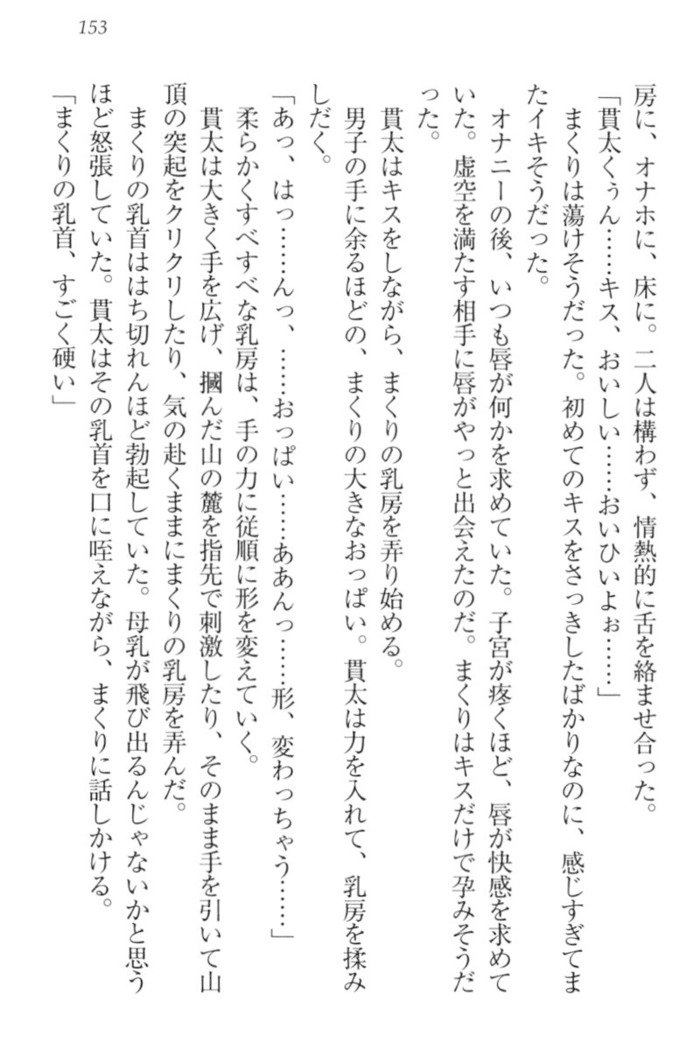 153
房に、オナホに、床に。二人は構わず、情熱的に舌を絡ませ合った。
「貫太くぅん……キス、おいしい……おいひいよぉ……」
まくりは蕩けそうだった。初めてのキスをさっきしたばかりなのに、感じすぎてま
たイキそうだった。
オナニーの後、いつも唇が何かを求めていた。子宮が疼くほど、唇が快感を求めて
いた。虚空を満たす相手に唇がやっと出会えたのだ。まくりはキスだけで孕みそうだ
った。
貫太はキスをしながら、まくりの乳房を弄り始める。
男子の手に余るほどの、まくりの大きなおっぱい。貫太は力を入れて、乳房を揉み
しだく。
「あっ、はっ……んっ、……おっぱい……ああんっ……形、変わっちゃう……」
柔らかくすべすべな乳房は、手の力に従順に形を変えていく。
貫太は大きく手を広げ、摑んだ山の麓を指先で刺激したり、そのまま手を引いて山
頂の突起をクリクリしたり、気の赴くままにまくりの乳房を弄んだ。
まくりの乳首ははち切れんほど勃起していた。母乳が飛び出るんじゃないかと思う
ほど怒張していた。貫太はその乳首を口に咥えながら、まくりに話しかける。
「まくりの乳首、すごく硬い」